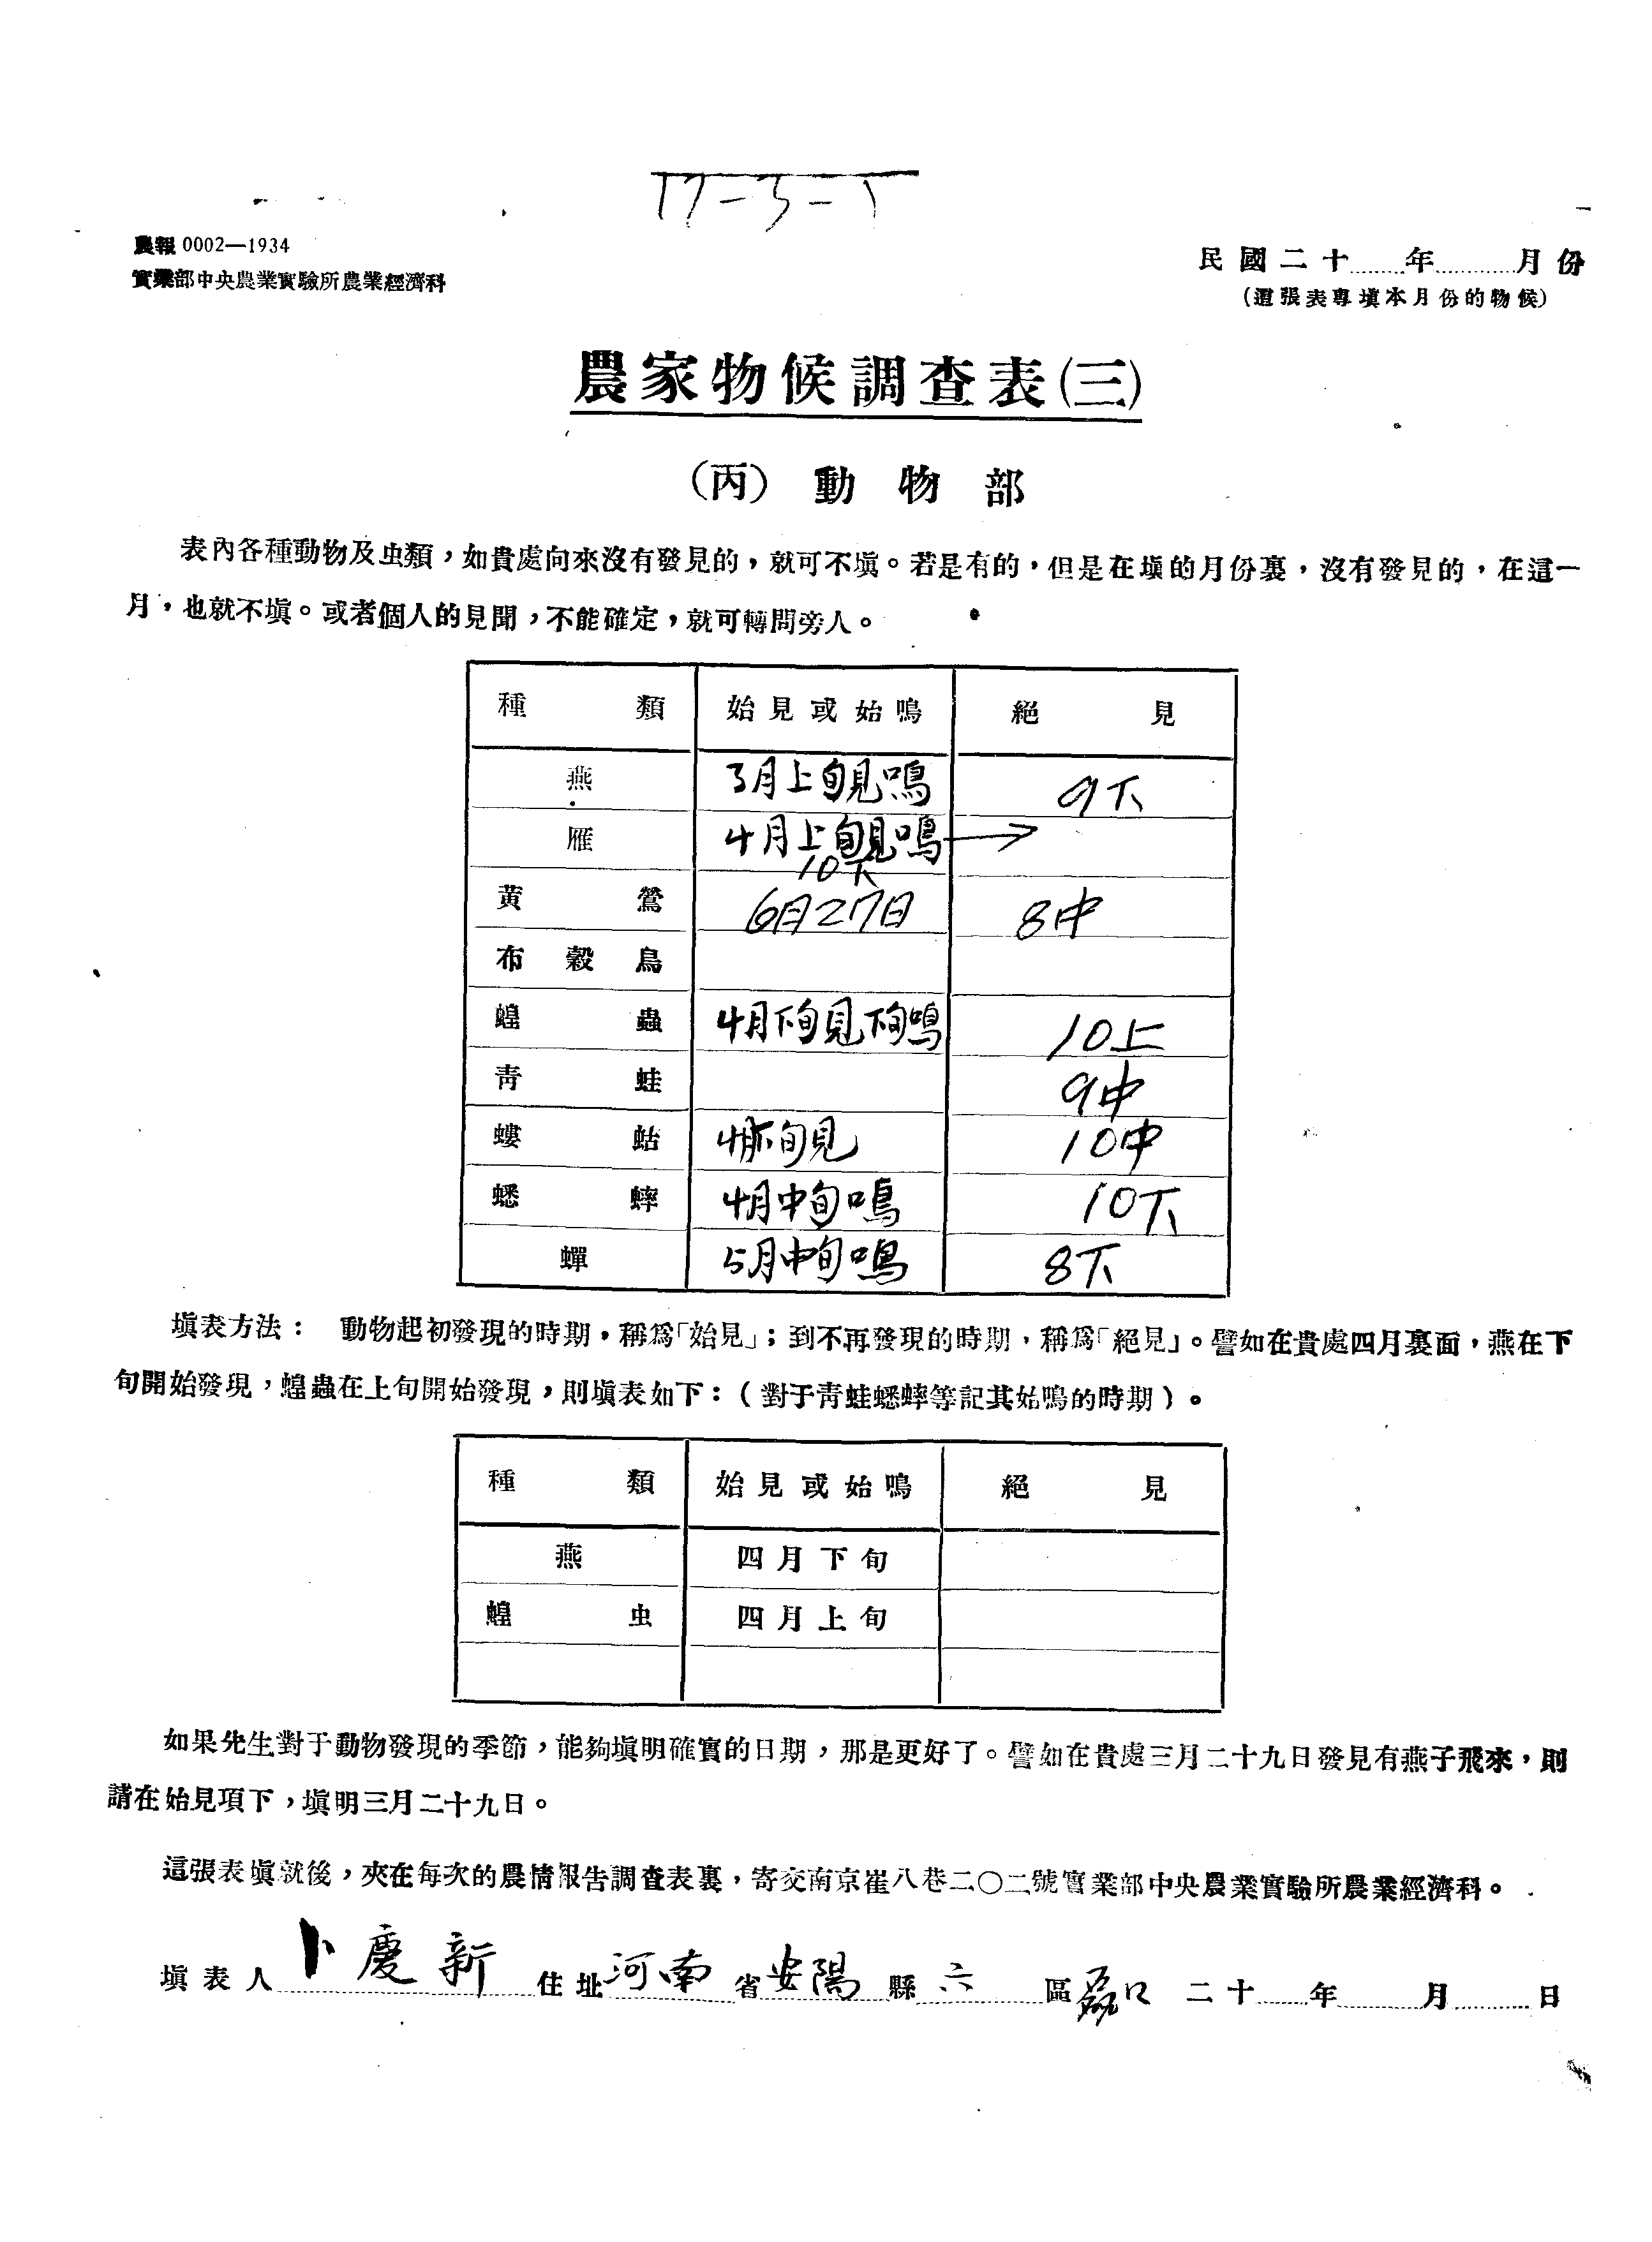 農報 0002—1934
實業部中央農業實驗所農業經濟科
民國二十……年………月份
(這張表專填本月份的物候)
農家物候調查表(三)
(丙) 動物部
表內各種動物及虫類，如貴處向來沒有發見的，就可不塡。若是有的，但是在塡的月份裏，沒有發見的，在這一
月，也就不塡。或者個人的見聞，不能確定，就可轉問旁人。
種類 始見或始鳴 絕見
燕 3月上旬見鳴 9下
雁 4月上旬見鳴 →
10下
黃鶯 6月27日 8中
布穀鳥
蝗蟲 4月下旬見下旬鳴 10上
靑蛙 9中
螻蛄 4月下旬見 10中
蟋蟀 4月中旬鳴 10下
蟬 5月中旬鳴 8下
塡表方法： 動物起初發現的時期，稱爲「始見」；到不再發現的時期，稱爲「絕見」。譬如在貴處四月裏面，燕在下
旬開始發現，蝗蟲在上旬開始發現，則塡表如下：（對于靑蛙蟋蟀等記其始鳴的時期）。
種類 始見或始鳴 絕見
燕 四月下旬
蝗虫 四月上旬
如果先生對于動物發現的季節，能夠塡明確實的日期，那是更好了。譬如在貴處三月二十九日發見有燕子飛來，則
請在始見項下，塡明三月二十九日。
這張表塡就後，夾在每次的農情報告調查表裏，寄交南京崔八巷二〇二號實業部中央農業實驗所農業經濟科。
塡表人 卜慶新 住址 河南 省 安陽 縣 六 區 口 二十……年………月………日